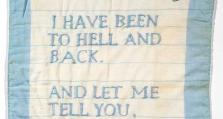 I HAVE BEEN
TO HELL AND
BACK.
AND LET ME
TELL YOU,